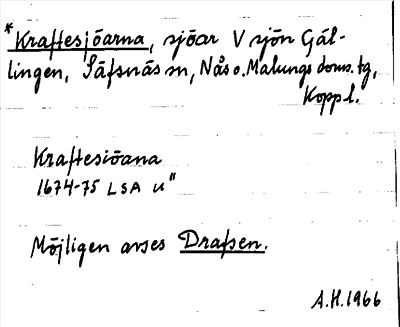 *Kraftesjöarna, sjöar V sjön Gäl-
lingen, Säfsnäs sn, Nås o. Malungs doms. tg,
Koppl.
Kraftesiöana
1674-75 LSA u"
Möjligen avses Drafsen.
A.H.1966